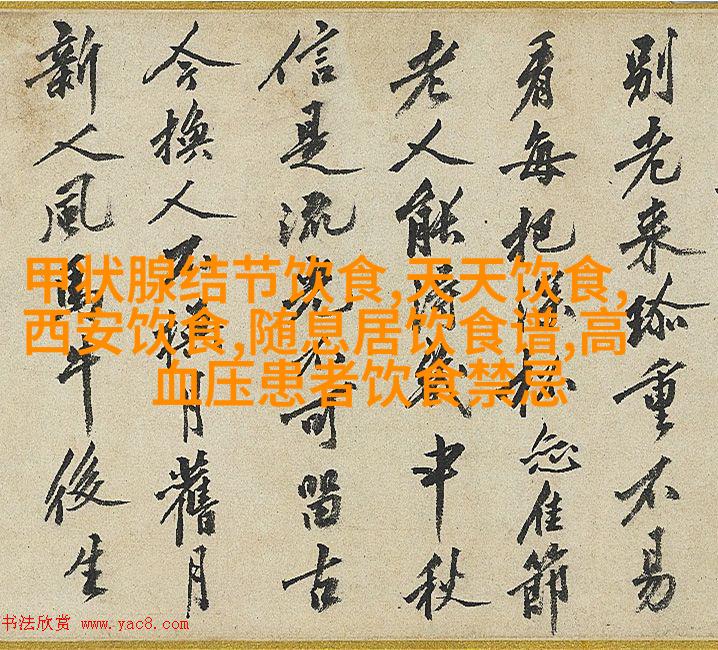 別老来珎重不易
看每把深杯佳節
老人能得幾中秋
信是流光不可留古
今換人不換月舊月
新人風馬牛後生
甲状腺结节饮食,天天饮食,
西安饮食,随息居饮食谱,高
血压患者饮食禁忌
书法欣赏 www.yac8.com